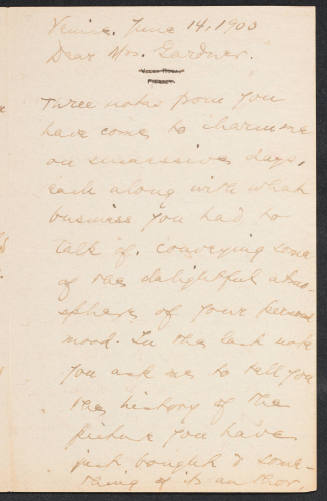 Venice. June 14, 1900
Dear Mrs. Gardner.
Three notes from you
have come to charm me
on successive days,
each along with what
business you had to
talk of, conveying some
of the delightful atmo-
sphere of your personal
mood. In the last note
you ask me to tell you
the history of the
picture you have
just bought & some-
thing of its author.